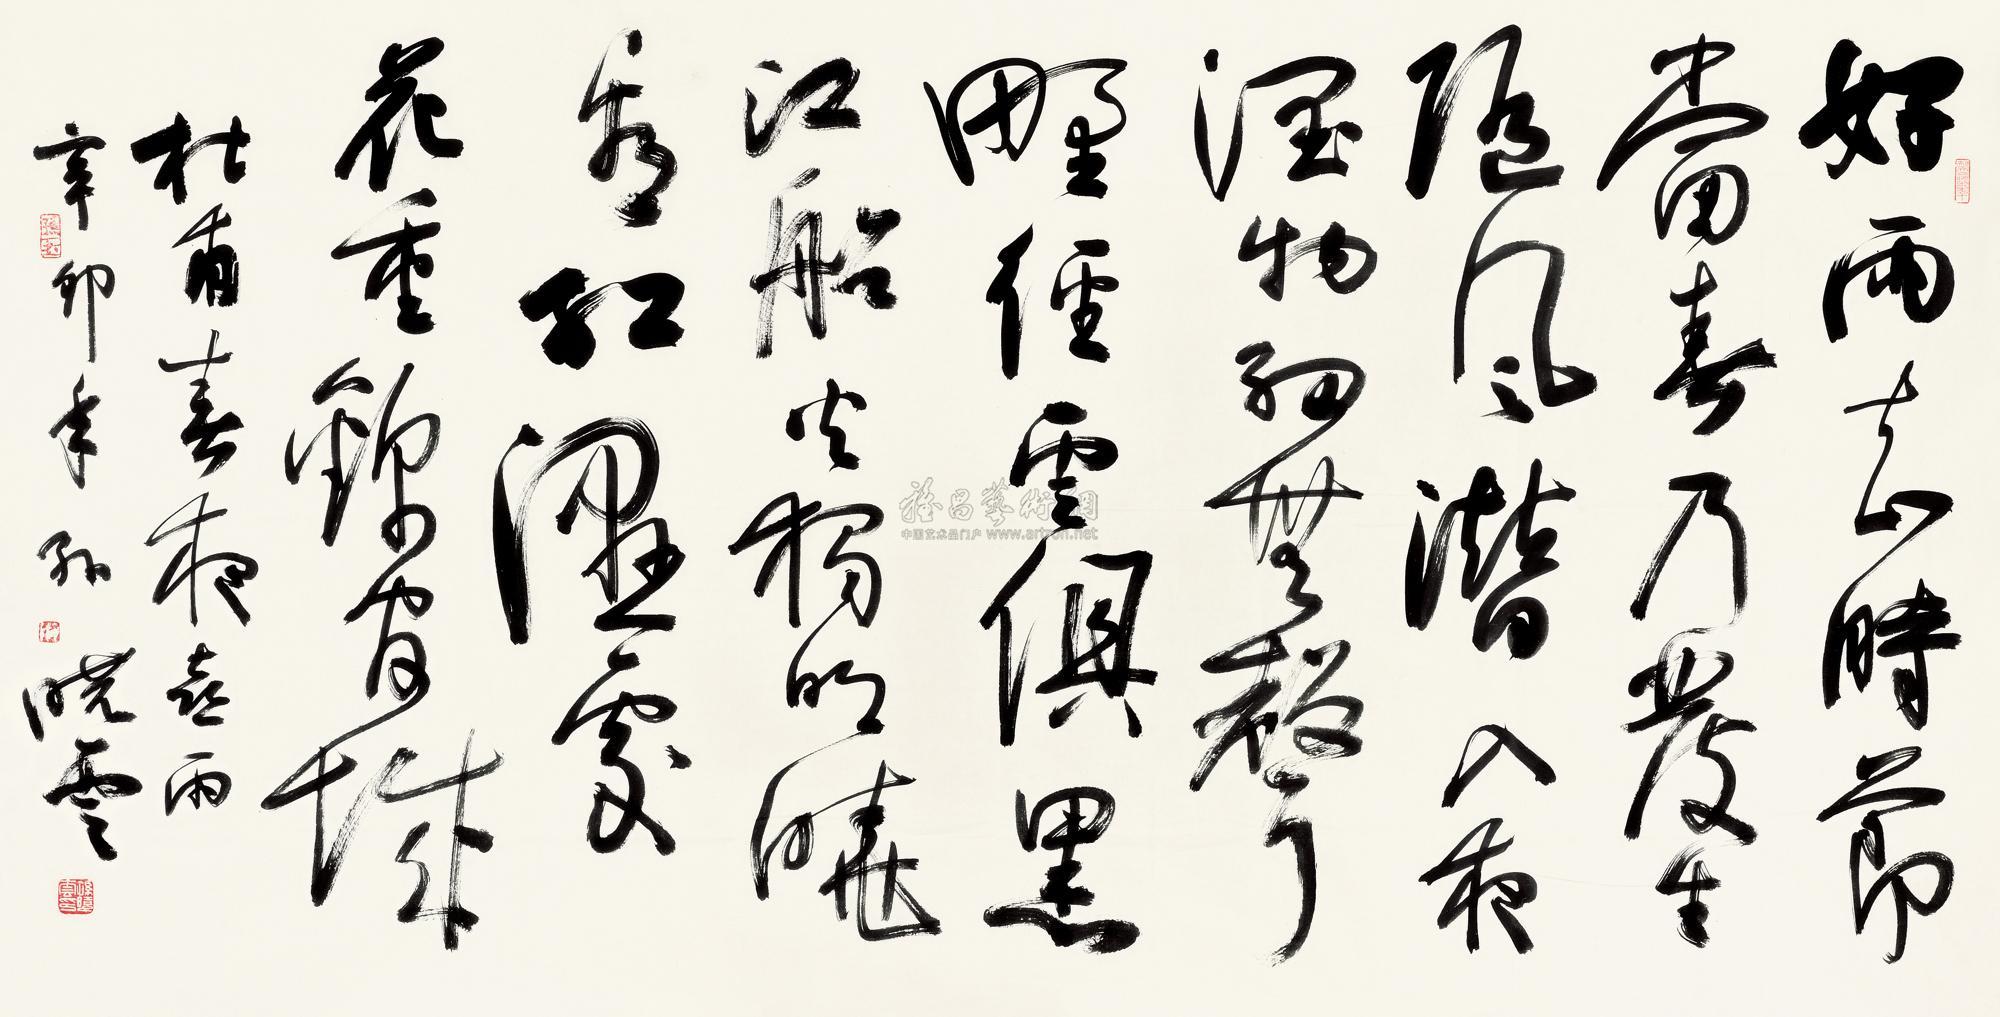 好雨知時節
當春乃發生
隨風潛入夜
潤物細無聲
野徑雲俱黑
江船火獨明曉
看紅濕處
花重錦官城
杜甫春夜喜雨
辛卯年孫曉雲
雅昌藝術網
中国艺术品门户 www.artron.net